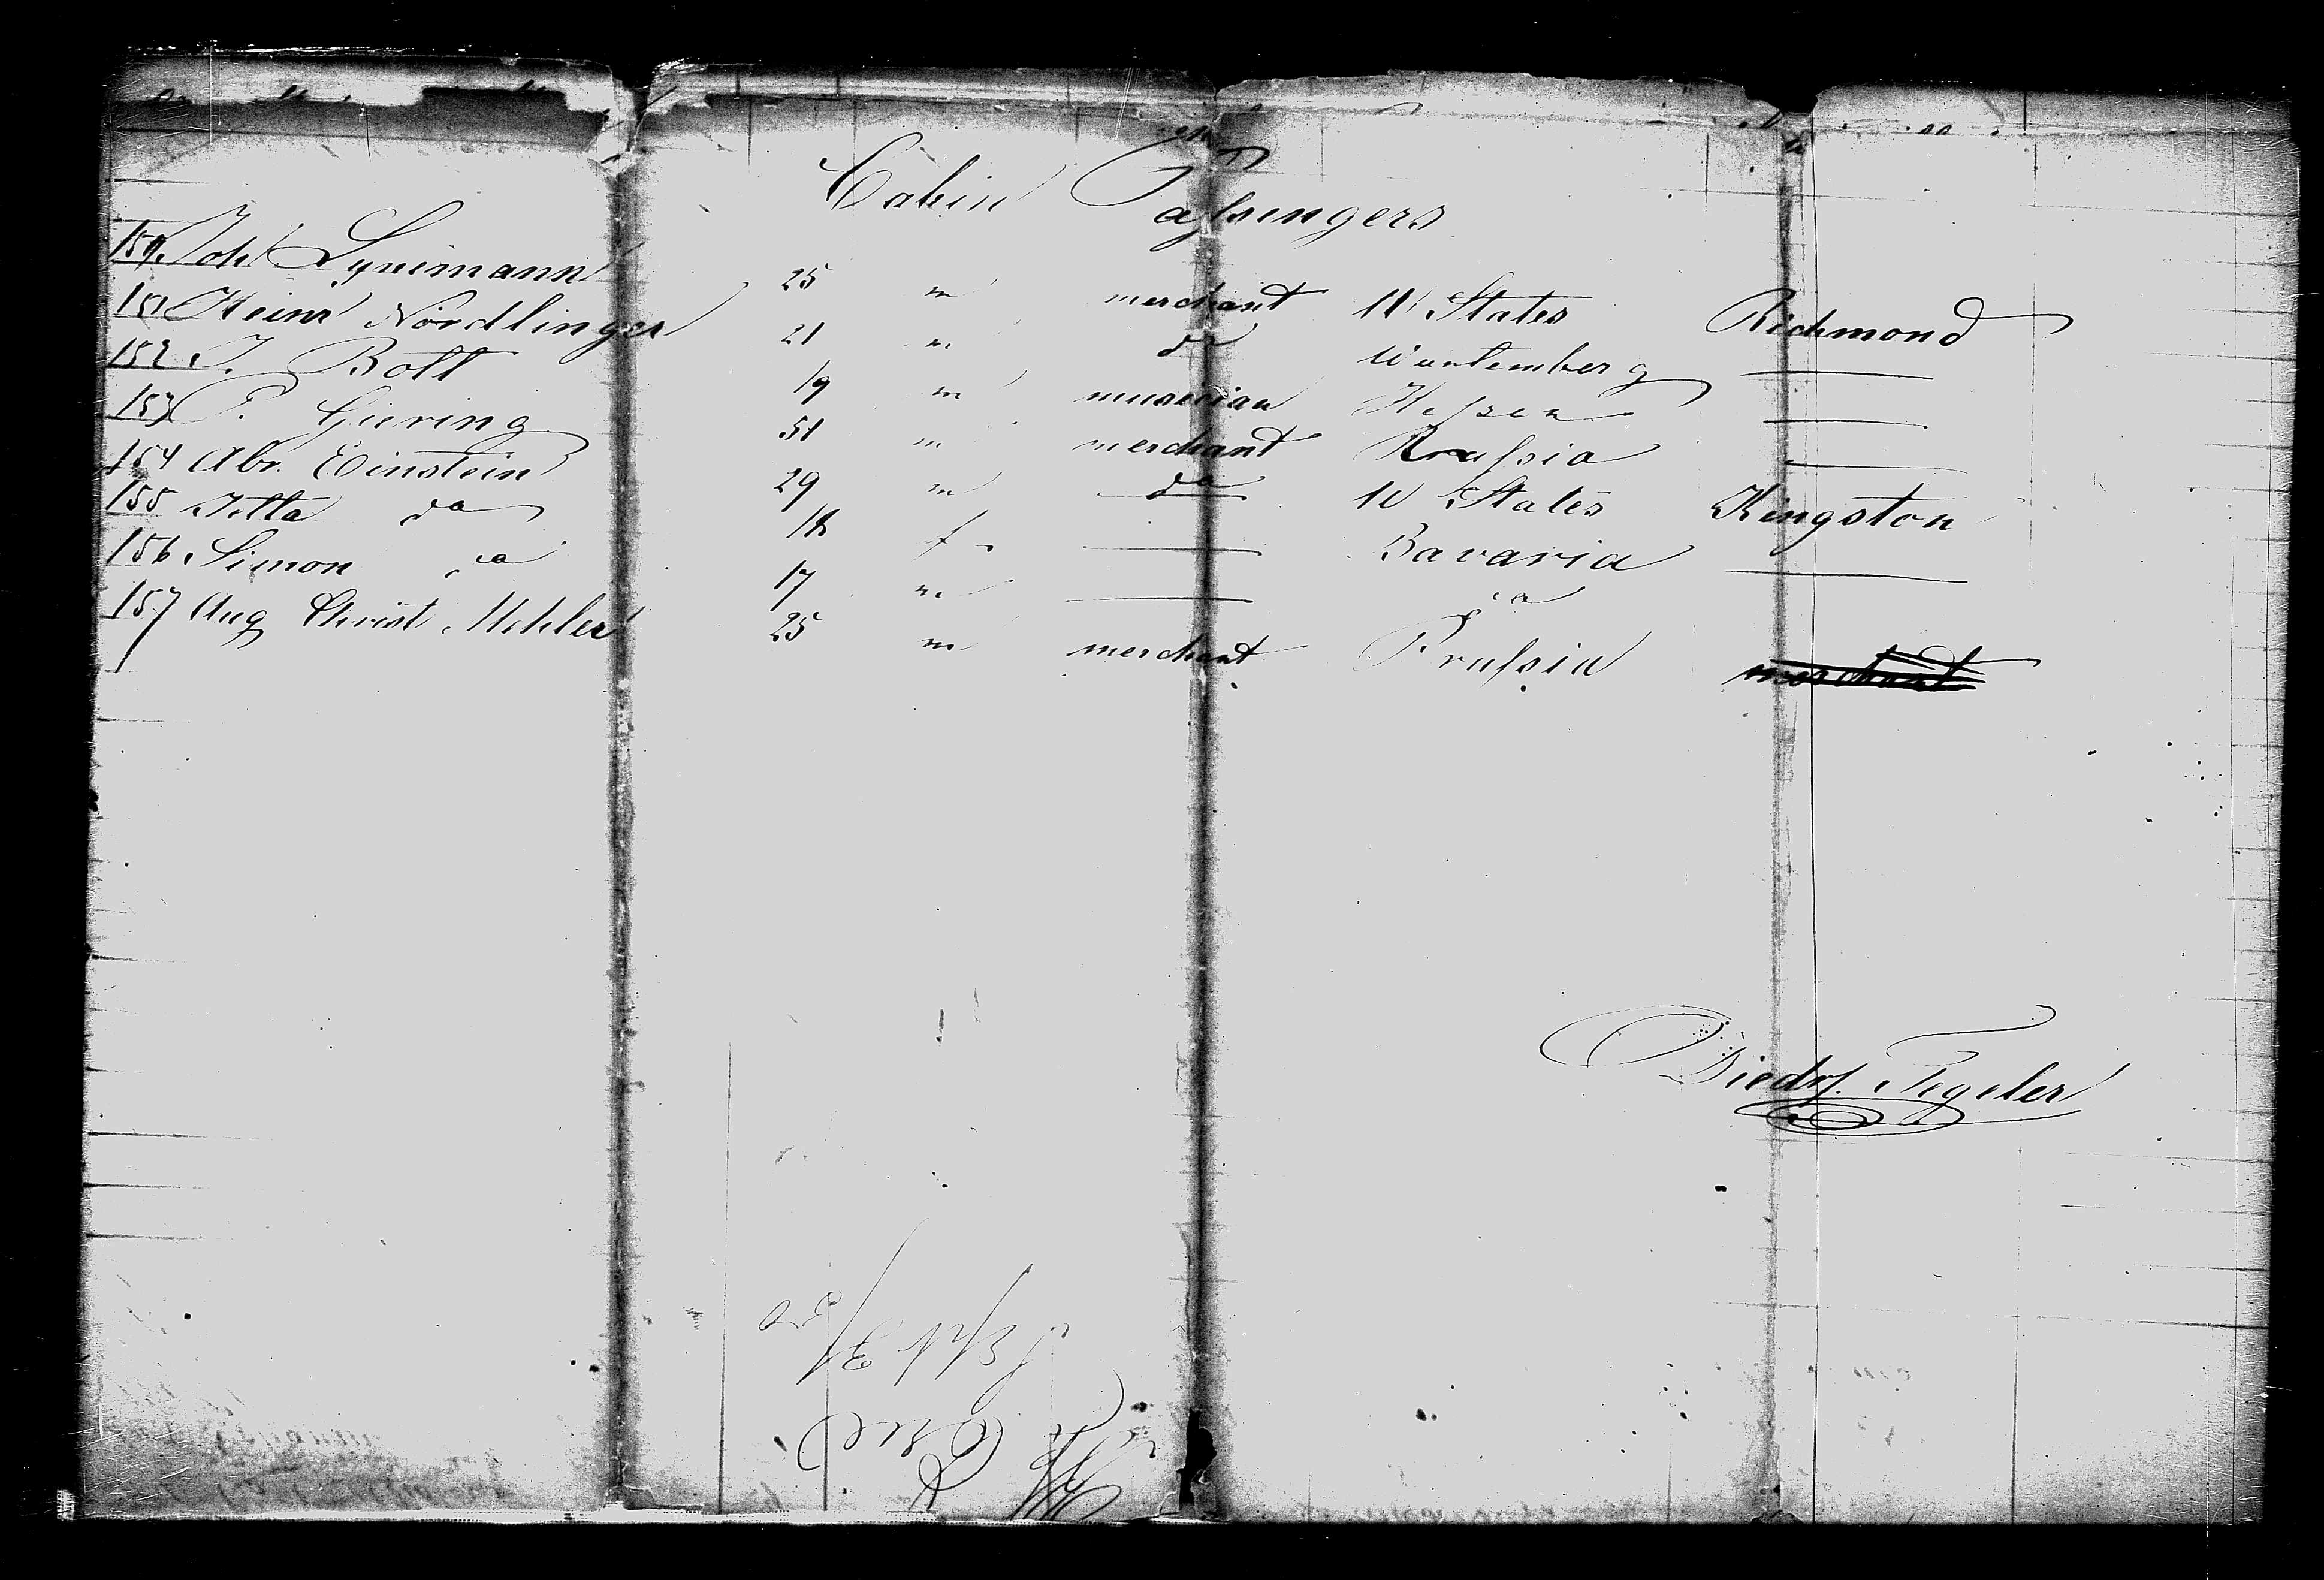 Cabin Passengers
150 Joh Lynemann 25 m merchant U States Richmond
151 Heinr Nördlinger 21 m do Würtemberg —
152 J. Bott 19 m musician Hessen —
153 P. Giering 51 m merchant Prussia —
154 Abr. Einstein 29 m do U States Kingston
155 Jetta do 18 f — Bavaria —
156 Simon do 17 m — do
157 Aug Christ Mehler 25 m merchant Prussia merchant
Diedr. Tegeler
Sept 3/50